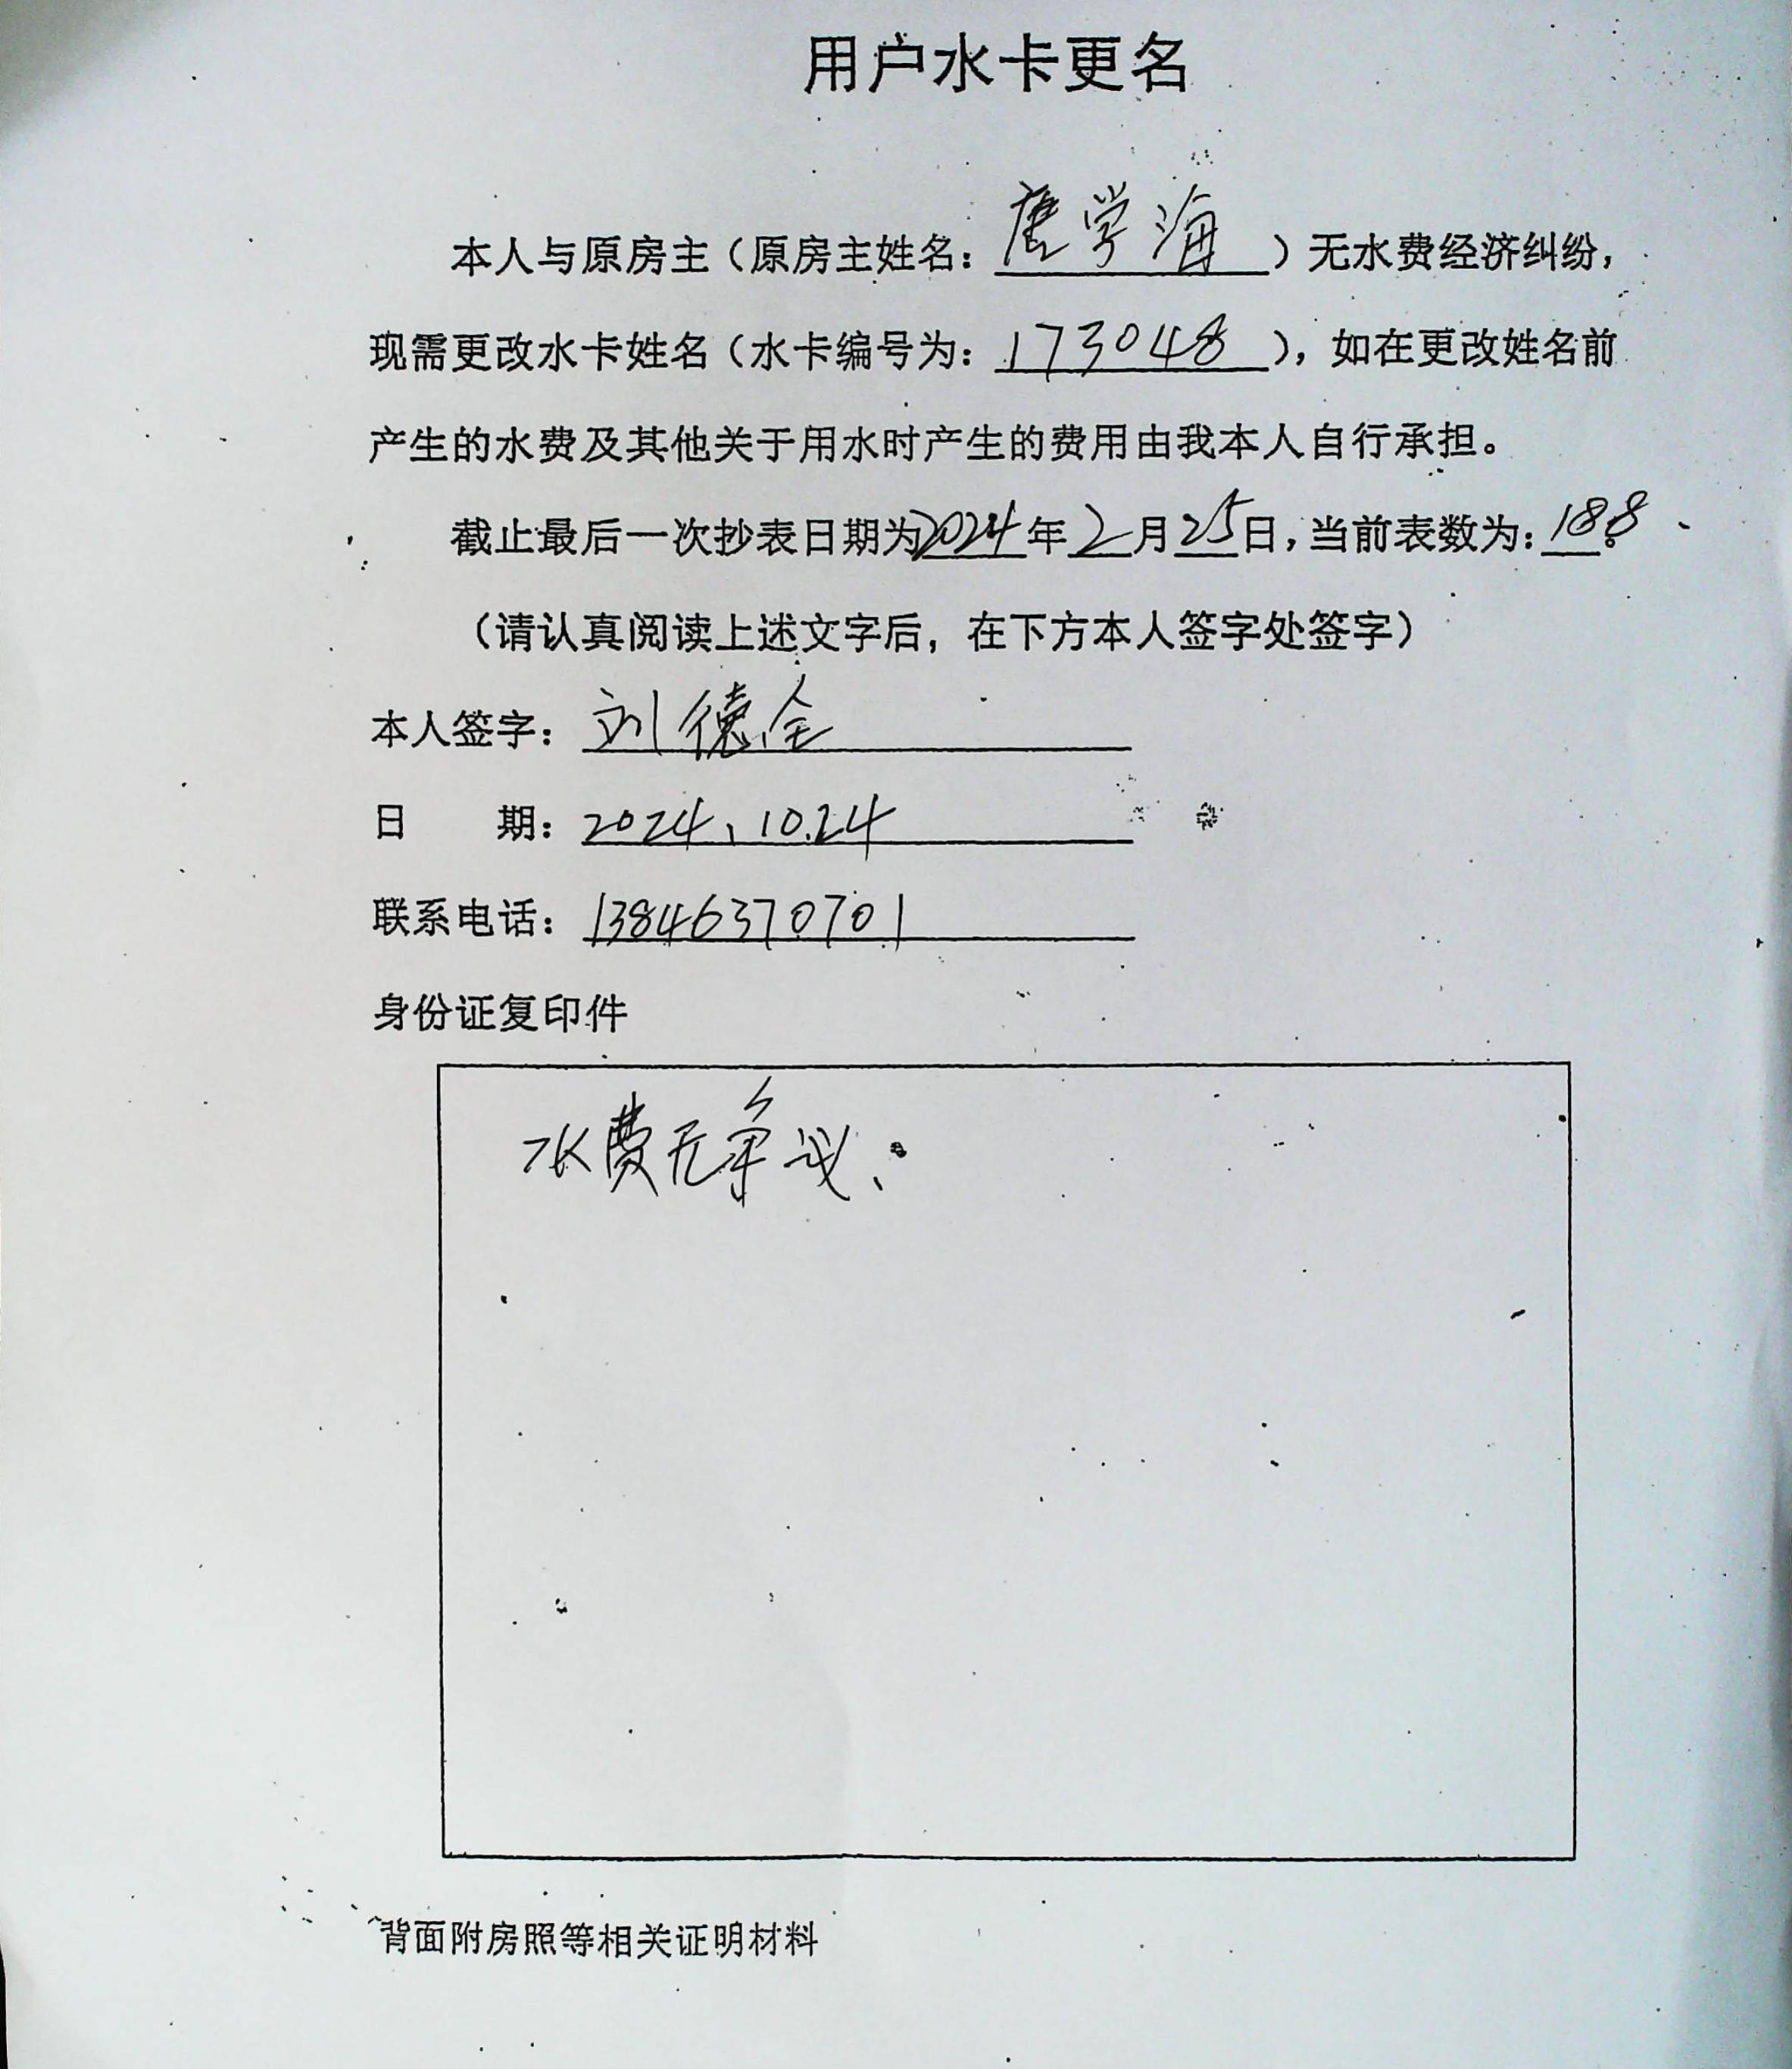 用户水卡更名
本人与原房主（原房主姓名：唐学海）无水费经济纠纷，
现需更改水卡姓名（水卡编号为：173048），如在更改姓名前
产生的水费及其他关于用水时产生的费用由我本人自行承担。
截止最后一次抄表日期为2024年2月25日，当前表数为：188。
（请认真阅读上述文字后，在下方本人签字处签字）
本人签字：刘德全
日 期：2024、10.24
联系电话：13846370701
身份证复印件
水费无争议、
背面附房照等相关证明材料